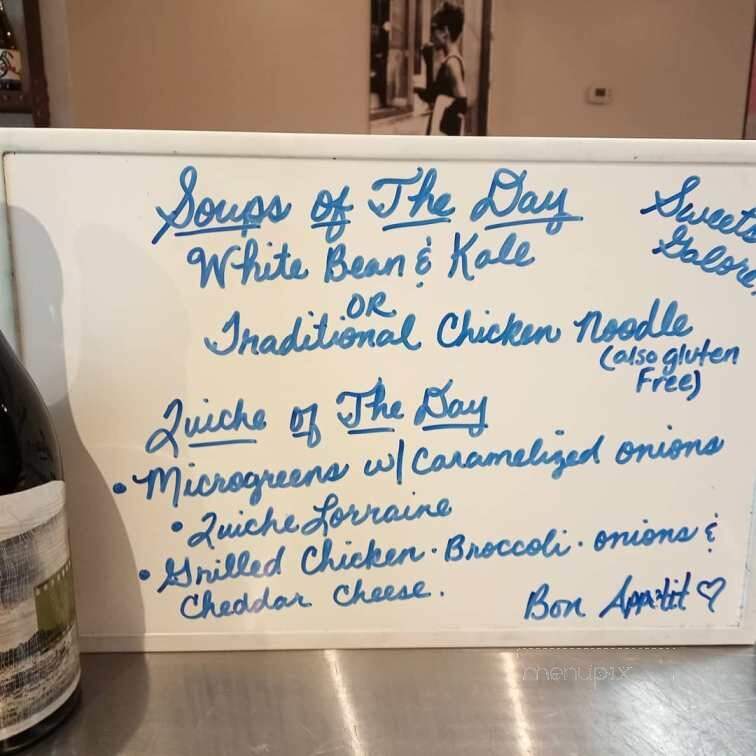 Soups of The Day
White Bean & Kale
OR
Traditional Chicken Noodle
(also gluten
Free)
Sweets
Galore,
Quiche of The Day
• Microgreens w/ Caramelized onions
• Quiche Lorraine
• Grilled Chicken · Broccoli · onions &
Cheddar Cheese.
Bon Appetit ♡
menupix